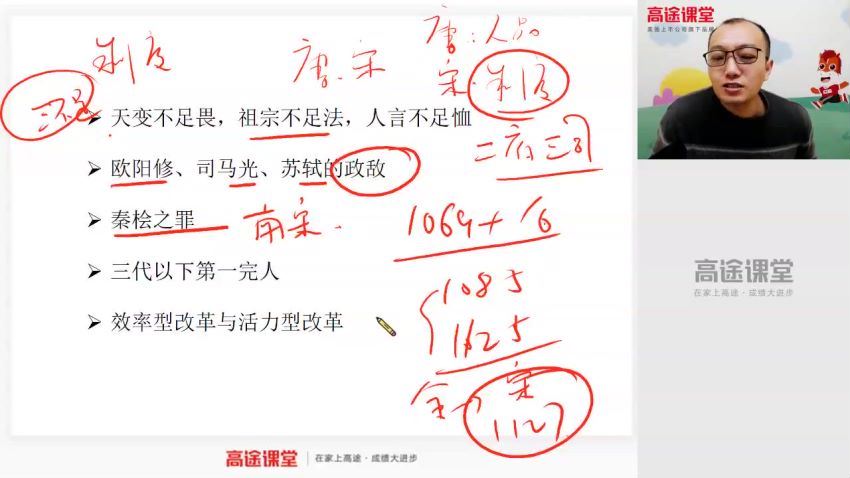 制度
唐.宋
唐:人品
宋:制度
三不足
天变不足畏，祖宗不足法，人言不足恤
二府三司
欧阳修、司马光、苏轼的政敌
秦桧之罪
南宋.
1069+16
三代以下第一完人
1085
效率型改革与活力型改革
1125
金 宋
1127
高途课堂
在家上高途·成绩大进步
高途课堂
美股上市公司旗下品牌
高途课堂
在家上高途·成绩大进步